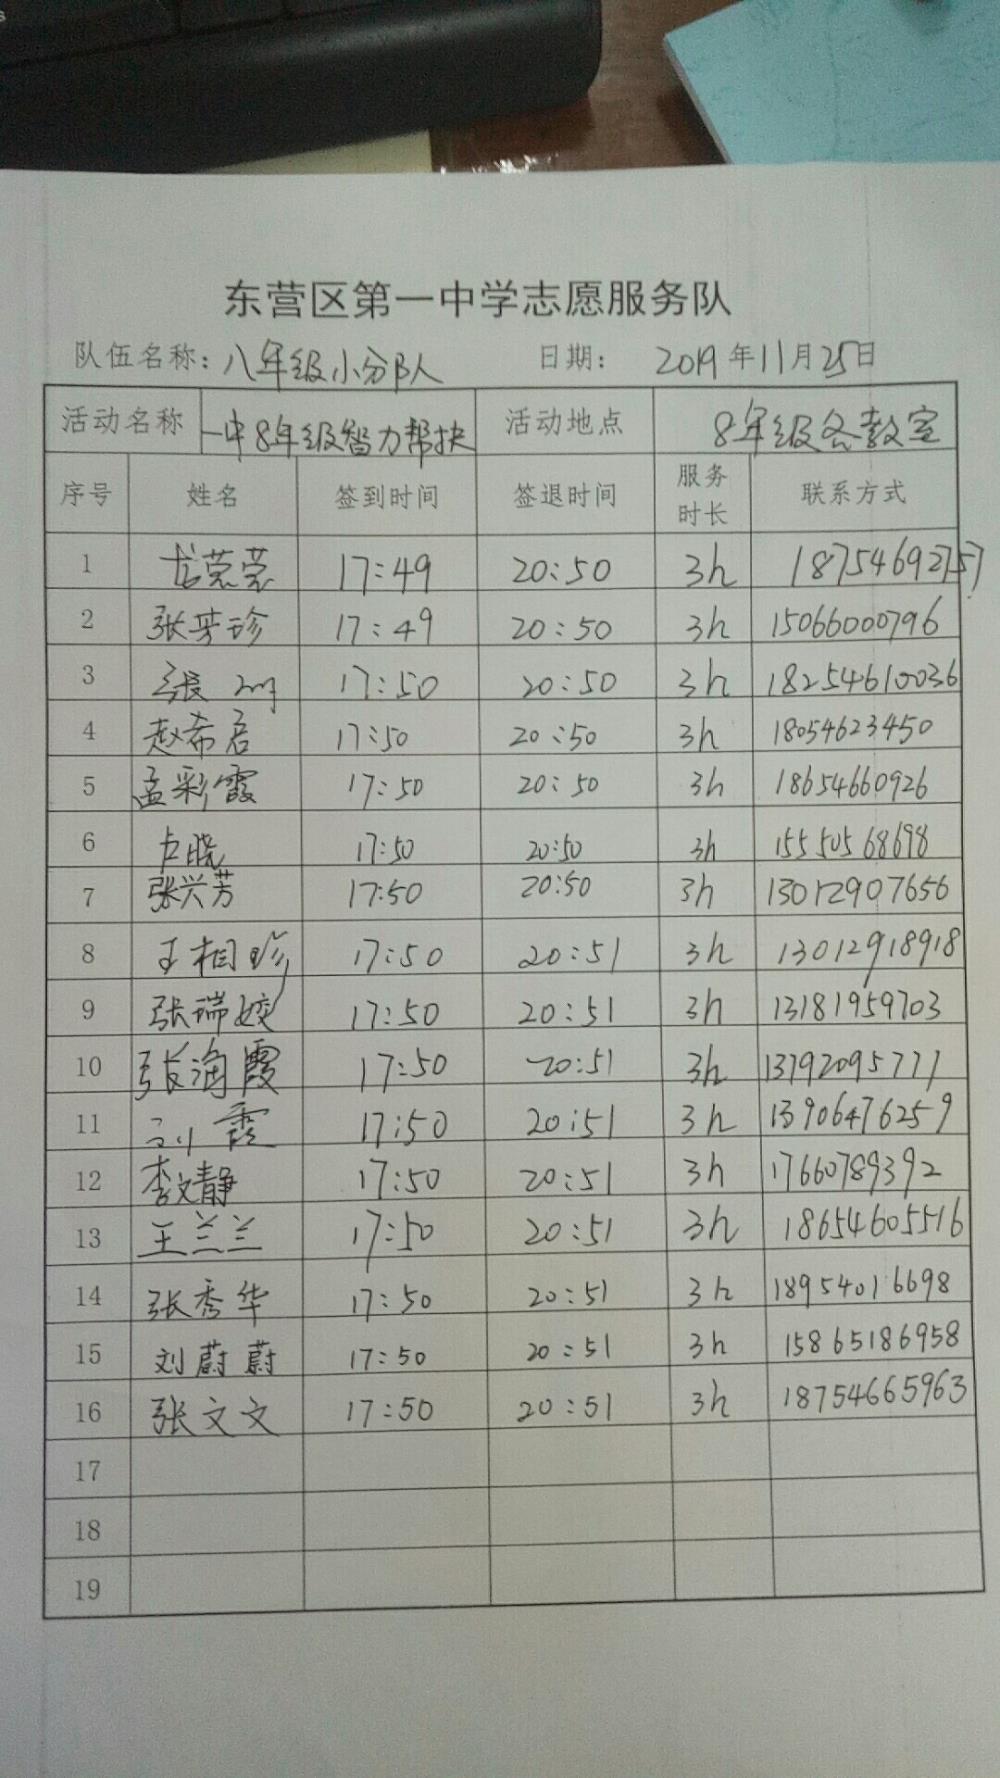 东营区第一中学志愿服务队
队伍名称：八年级小分队 日期： 2019年11月25日
活动名称 一中8年级智力帮扶 活动地点 8年级各教室
序号 姓名 签到时间 签退时间 服务时长 联系方式
1 尤莹莹 17:49 20:50 3h 18754692757
2 张芳珍 17:49 20:50 3h 15066000796
3 张 17:50 20:50 3h 18254610036
4 赵希启 17:50 20:50 3h 18054623450
5 孟彩霞 17:50 20:50 3h 18654660926
6 卢晓 17:50 20:50 3h 15550568698
7 张兴芳 17:50 20:50 3h 13012907656
8 王相珍 17:50 20:51 3h 13012918918
9 张瑞姣 17:50 20:51 3h 13181959703
10 张海霞 17:50 20:51 3h 13792095777
11 刘霞 17:50 20:51 3h 13906476259
12 李文静 17:50 20:51 3h 17660789392
13 王兰兰 17:50 20:51 3h 18654605516
14 张秀华 17:50 20:51 3h 18954016698
15 刘蔚蔚 17:50 20:51 3h 15865186958
16 张文文 17:50 20:51 3h 18754665963
17
18
19